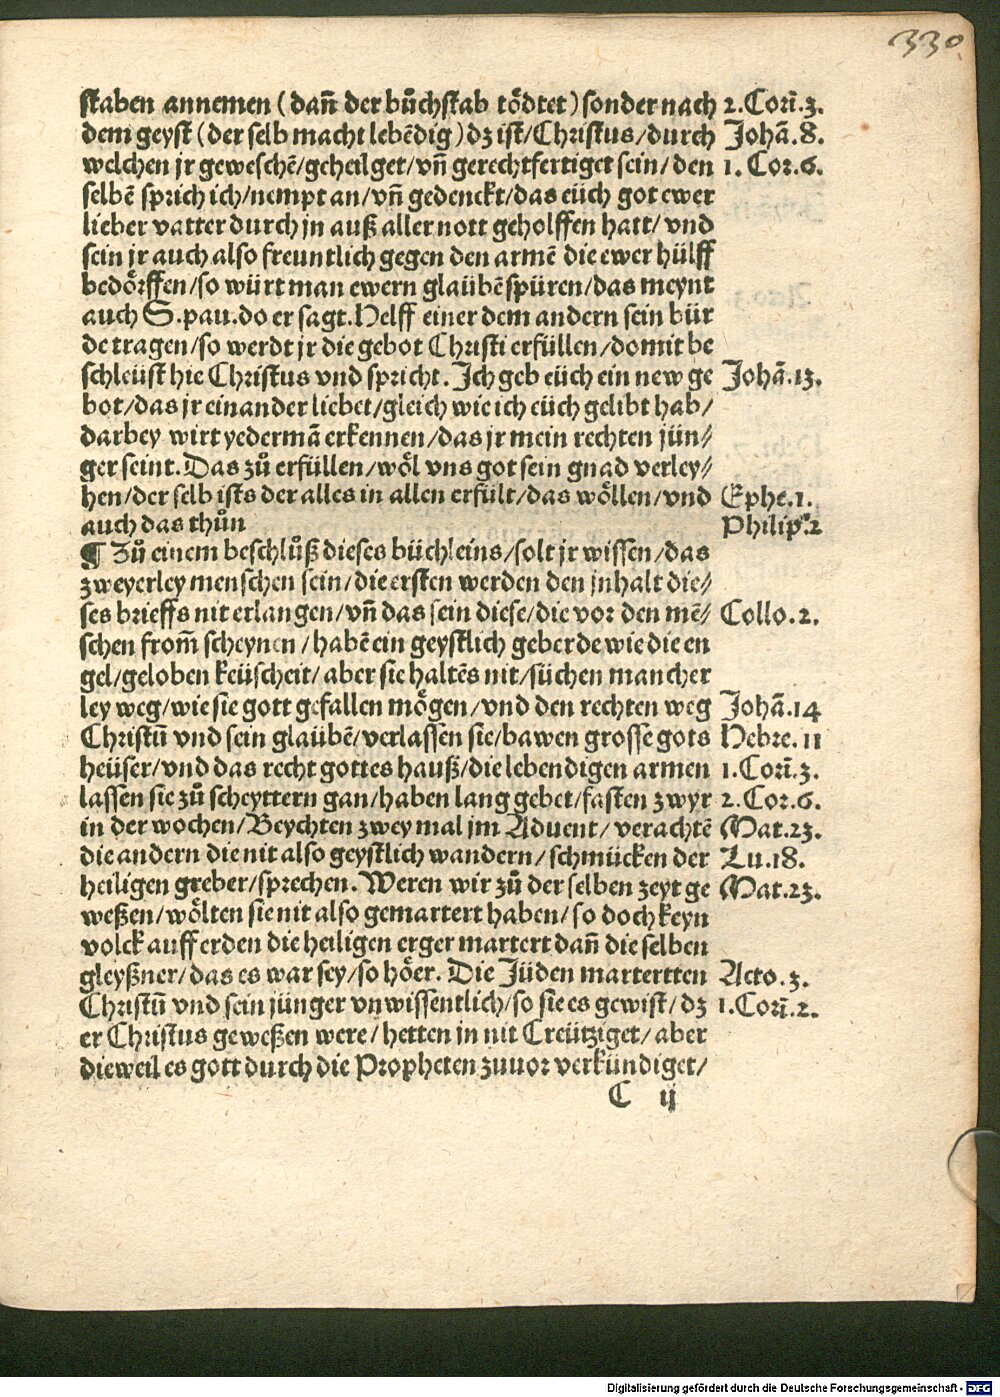 330
staben annemen (dañ der bůchstab tödtet) sonder nach 2. Cori̅.3.
dem geyst (der selb macht lebēdig) dz ist/Christus/durch Johā.8.
welchen jr geweschē/geheilget/vñ gerechtfertiget sein/den 1. Cor.6.
selbē sprich ich/nempt an/vñ gedenckt/das eüch got ewer
lieber vatter durch jn auß aller nott geholffen hatt/vnd
sein jr auch also freuntlich gegen den armē die ewer hülff
bedörffen/so würt man ewern glaübē spüren/das meynt
auch S.pau.do er sagt.Helff einer dem andern sein bür
de tragen/so werdt jr die gebot Christi erfüllen/domit be
schleüst hie Christus vnd spricht. Ich geb eüch ein new ge Johā.13.
bot/das jr einander liebet/gleich wie ich eüch gelibt hab/
darbey wirt yedermā erkennen/das jr mein rechten jün⸗
ger seint. Das zů erfüllen/wöl vns got sein gnad verley⸗
hen/der selb ists der alles in allen erfült/das wöllen/vnd Ephe.1.
auch das thůn Philip.2
¶ Zů einem beschlůß dieses büchleins/solt jr wissen/das
zweyerley menschen sein/die ersten werden den jnhalt die⸗
ses brieffs nit erlangen/vñ das sein diese/die vor den mē⸗ Collo.2.
schen from̄ scheynen/habē ein geystlich geberde wie die en
gel/geloben keüscheit/aber sie haltēs nit/süchen mancher
ley weg/wie sie gott gefallen mögen/vnd den rechten weg Johā.14
Christū vnd sein glaübē/verlassen sie/bawen grosse gots Hebre.11
heüser/vnd das recht gottes hauß/die lebendigen armen 1.Cori̅.3.
lassen sie zů scheyttern gan/haben lang gebet/fasten zwyr 2.Cor.6.
in der wochen/Beychten zwey mal jm Aduent/verachtē Mat.23.
die andern die nit also geystlich wandern/schmücken der Lu.18.
heiligen greber/sprechen. Weren wir zů der selben zeyt ge Mat.23.
weßen/wölten sie nit also gemartert haben/so doch keyn
volck auff erden die heiligen erger martert dañ die selben
gleyßner/das es war sey/so höer. Die Jüden martertten Acto.3.
Christū vnd sein jünger vnwissentlich/so sie es gewist/dz 1.Cori̅.2.
er Christus geweßen were/hetten jn nit Creütziget/aber
dieweil es gott durch die Propheten zuuor verkündiget/
C ij
Digitalisierung gefördert durch die Deutsche Forschungsgemeinschaft - DFG